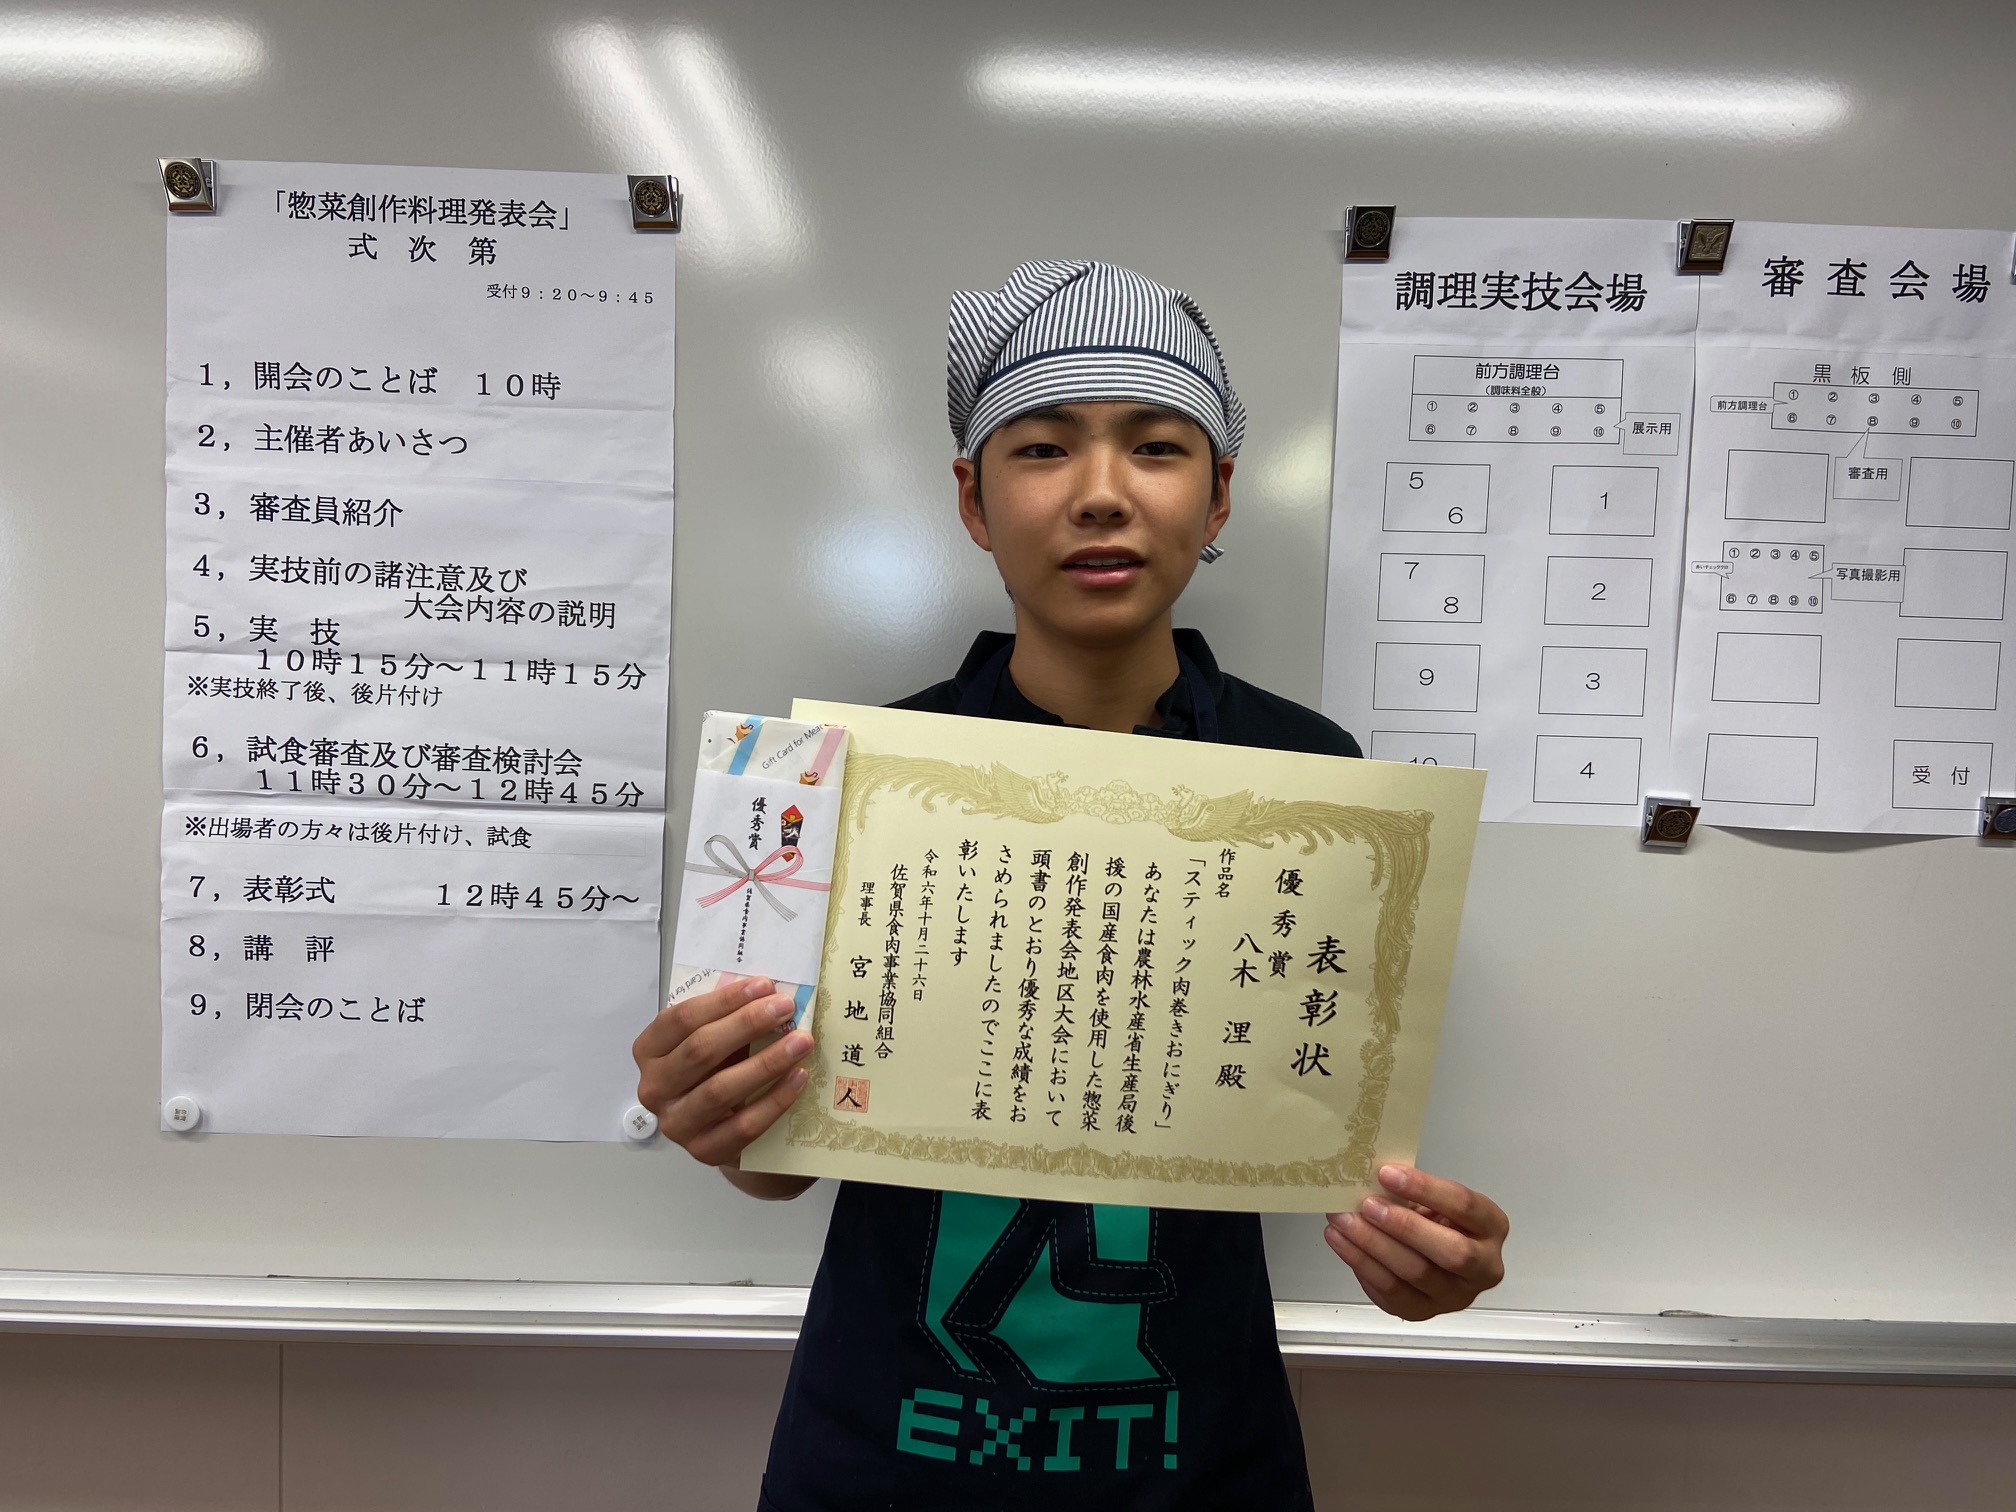 「惣菜創作料理発表会」
式　次　第
受付9：20～9：45
1，開会のことば　10時
2，主催者あいさつ
3，審査員紹介
4，実技前の諸注意及び
大会内容の説明
5，実　技
10時15分～11時15分
※実技終了後、後片付け
6，試食審査及び審査検討会
11時30分～12時45分
※出場者の方々は後片付け、試食
7，表彰式　12時45分～
8，講　評
9，閉会のことば
調理実技会場
前方調理台
(調味料全般)
① ② ③ ④ ⑤
⑥ ⑦ ⑧ ⑨ ⑩
展示用
5
6
1
7
8
2
9
3
10
4
審査会場
黒　板　側
前方調理台
① ② ③ ④ ⑤
⑥ ⑦ ⑧ ⑨ ⑩
審査用
① ② ③ ④ ⑤
⑥ ⑦ ⑧ ⑨ ⑩
写真撮影用
受　付
Gift Card for Meat
優秀賞
佐賀県食肉事業協同組合
表彰状
優秀賞
八木　浬　殿
作品名
「スティック肉巻きおにぎり」
あなたは農林水産省生産局後
援の国産食肉を使用した惣菜
創作発表会地区大会において
頭書のとおり優秀な成績をお
さめられましたのでここに表
彰いたします
令和六年十月二十六日
佐賀県食肉事業協同組合
理事長　宮地道人
EXIT!